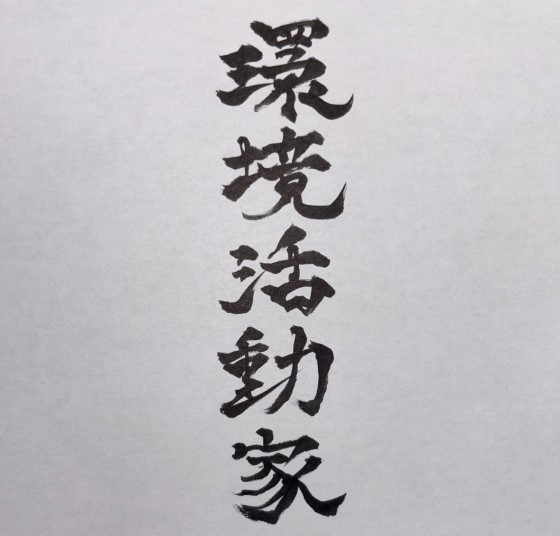 環境活動家